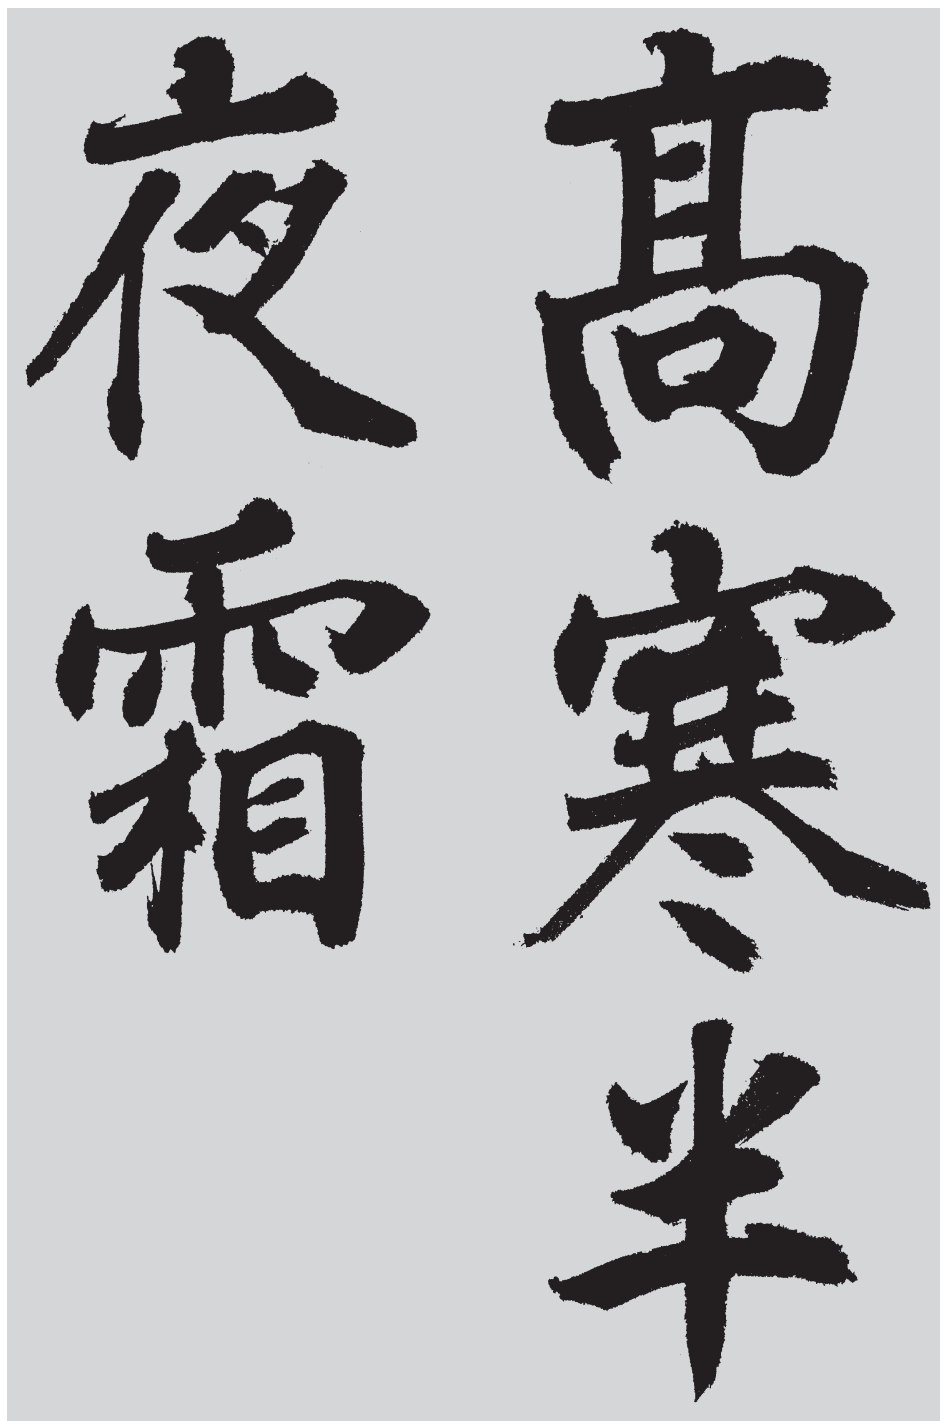 髙寒半
夜霜